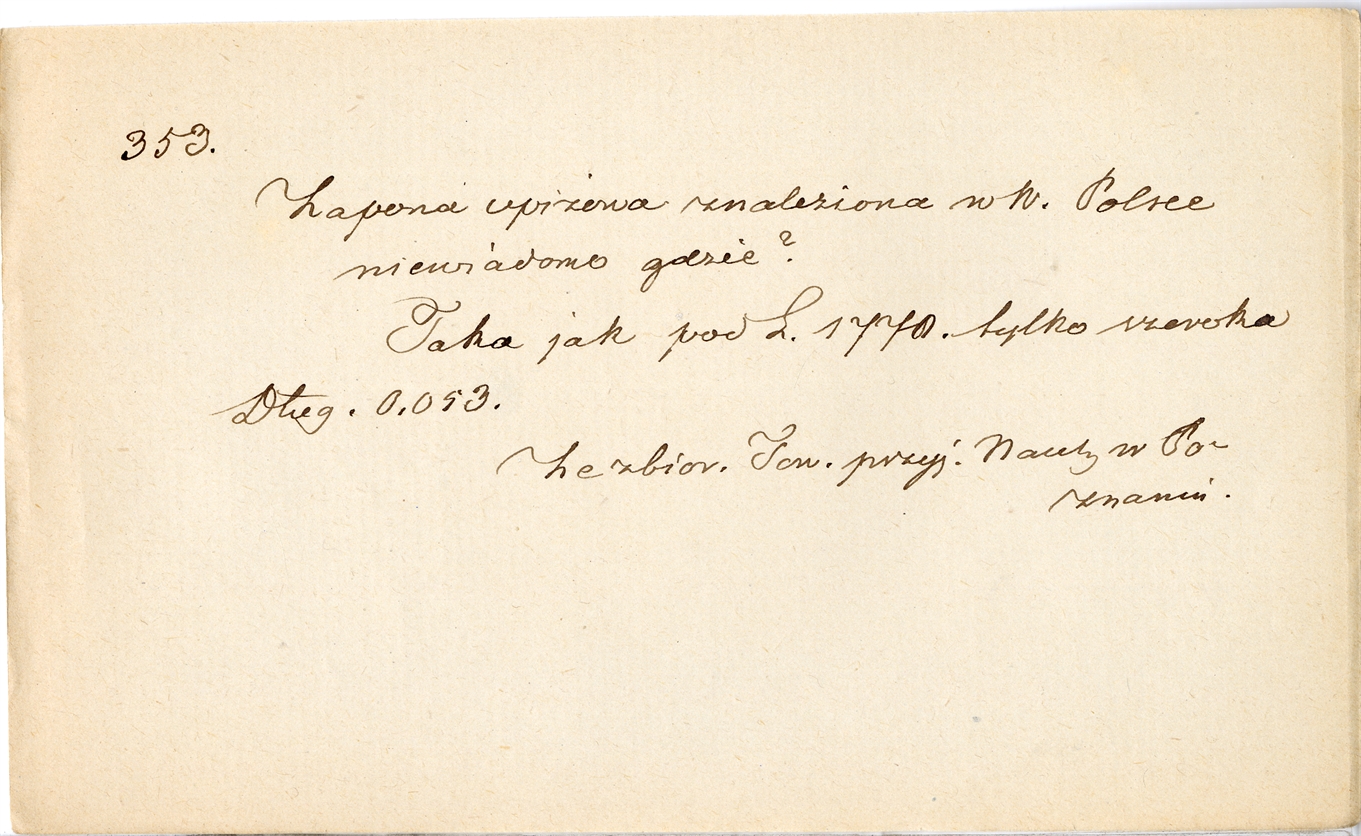 353.
Zapona spiżowa znaleziona w W. Polsce
niewiadomo gdzie?
Taka jak pod L. 1770. tylko szeroka
Dług. 0.053.
Ze zbior. Tow. przyj. Nauk w Po-
znaniu.